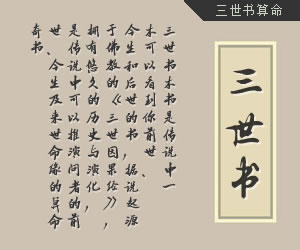 三世书算命
三世书
三世书本书是传说中一
本可以看到你前世、
今生和后世的书，据说起源
于佛教的《三世因果经》，
拥有悠久的历史与演化，
是传说中可以推演问者的前
世、今生及来世命缘的算命
奇书。